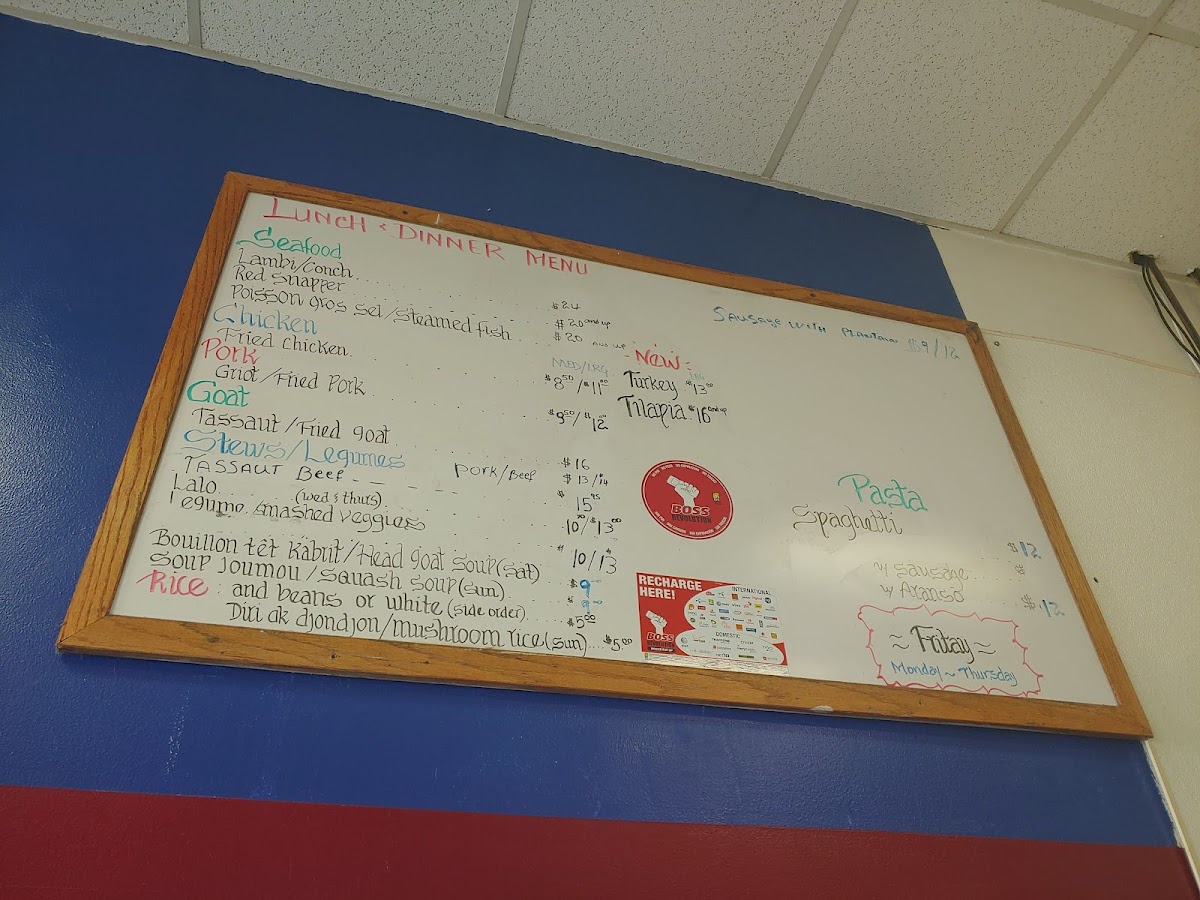 LUNCH & DINNER MENU
Seafood
Lambi/Conch $24
Red Snapper $20 and up
Poisson gros sel/steamed fish $20 and up
Chicken MED/LRG
Fried Chicken $8.50/$11.00
Pork
Griot/Fried Pork $9.50/$12
Goat
Tassaut/Fried goat $16
Stews/Legumes
TASSAUT Beef Pork/Beef $13/14
Lalo (wed & thurs) $15.95
Legume, smashed veggies 10/$13.00
Bouillon têt Kabrit/Head goat soup (Sat) 10/13
Soup Joumou/Squash soup (sun) $9
Rice: and beans or white (side order) $5.00
Diri ak djondjon/mushroom rice (sun) $5.00
SAUSAGE WITH PLANTAIN $9/12
NEW:
LRG
Turkey $13.00
Tilapia $16 and up
BOSS
REVOLUTION
RECHARGE
HERE!
INTERNATIONAL
DOMESTIC
BOSS
REVOLUTION
Pasta
Spaghetti $12
w/ sausage $
w/ Aranso $12
~ Fritay ~
Monday ~ Thursday